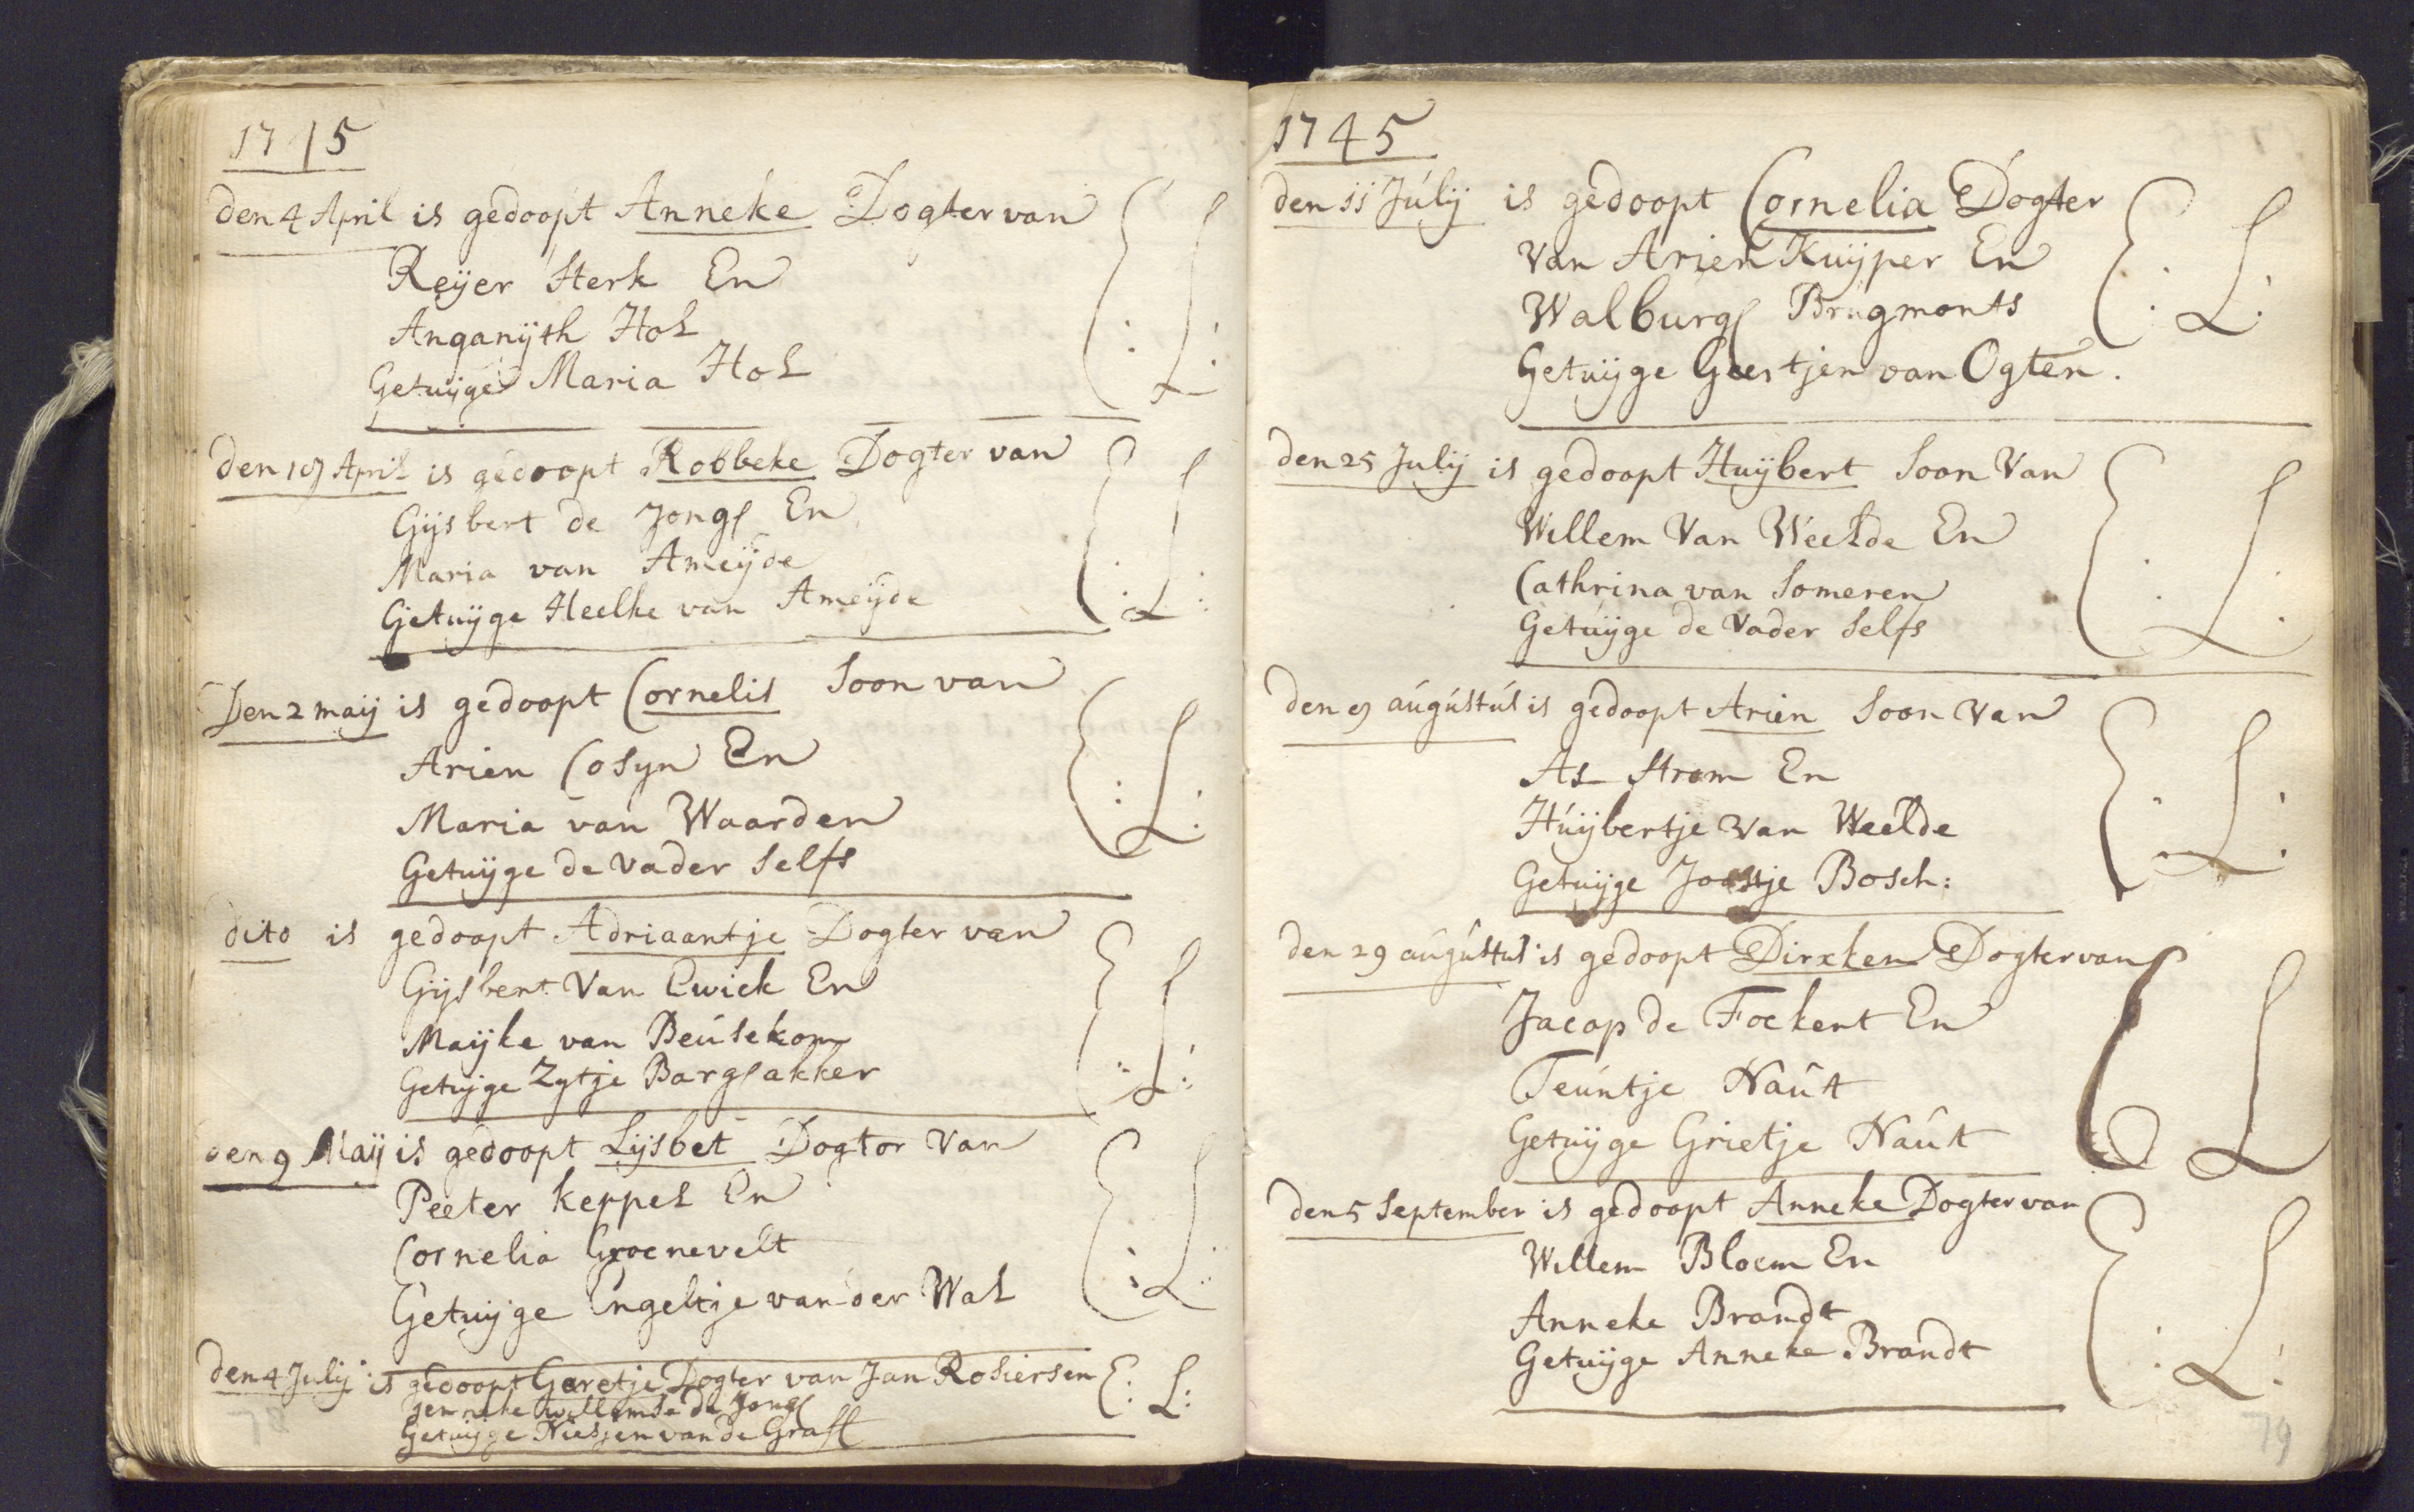 1745
den 4 April is gedoopt Anneke Dogter van
Reijer Sterk En
Anganijth Hol
Getuijge Maria Hol
E: L:
den 19 April is gedoopt Robbeke Dogter van
Gijsbert de Jong En
Maria van Ameijde
Getuijge Heelke van Ameijde
E: L:
Den 2 maij is gedoopt Cornelis Soon van
Arien Cosyn En
Maria van Waarden
Getuijge de Vader Selfs
E: L:
dito is gedoopt Adriaantje Dogter van
Gijsbert Van Ewick En
Maijke van Beusekom
Getujge Zytje Bargakker
E: L:
den 9 Maij is gedoopt Lijsbet Dogtor Van
Peeter Keppel En
Cornelia Groenevelt
Getuijge Engeltje van der Wal
E: L:
den 4 Julij is gedoopt Geretje Dogter van Jan Rosiers en
Jenneke willemse de Jong
Getuijge Niesjen van de Graff
E: L:
78
1745
den 11 Julij is gedoopt Cornelia Dogter
Van Arien Kuijper En
Walburg Brugmonts
Getuijge Geertjen van Ogten.
E: L:
den 25 Julij is gedoopt Huijbert Soon Van
Willem Van Weelde En
Cathrina van Someren
Getuijge de Vader Selfs
E: L:
den 9 augustus is gedoopt Arien Soon Van
As Strom En
Huijbertje Van Weelde
Getuijge Joostje Bosch:
E: L:
den 29 augustus is gedoopt Dirxken Dogter van
Jacop de Fockert En
Teuntje Naut
Getuijge Grietje Naut
E L
den 5 September is gedoopt Anneke Dogter van
Willem Bloem En
Anneke Brandt
Getuijge Anneke Brandt
E: L:
79